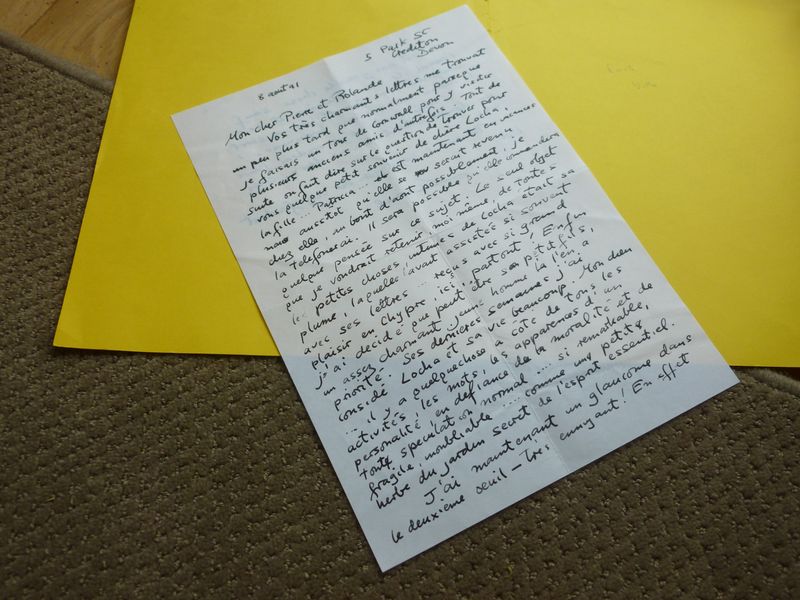 8 août 91
5 Park St
Crediton
Devon
Mon cher Pierre et Rolande
Vos très charmants lettres me trouvat
un peu plus tard que normalment parceque
je faisais un tour de Cornwall pour y visiter
plusieurs anciens amis d'autrefois. Tout de
suite on fait dire sur le question de trouver pour
vous quelque petit souvenir de chère Locha:
la fille... Patricia... est maintenant en vacances
mais aussitot qu'elle se serait revenu
chez elle, au bout d'août possiblement, je
la telefonerai. Il sera possible qu'elle commandera
quelque pensée sur ce sujet. Le seul objet
que je voudrait retenir, moi même, de toutes
les petits choses intimes de Locha était sa
plume, laquelle l'avait assistée si souvent
avec ses lettres... reçus avec si grand
plaisir en Chypre, ici, partout! Enfin
j'ai décidé que peut être son petit fils,
un assez charmant jeune homme là l'en a
priorité. Ses dernières semaines j'ai
considé Locha et sa vie beaucoup. Mon dieu
... il y a quelquechose à côté de tous les
activités, les mots, les apparences d'un
personalité, en defiance de la moralité et de
toute speculation normal... si remarkable,
fragile, inoubliable.... comme une petite
herbe du jardin secret de l'esprit essentiel.
J'ai maintenant un glaucome dans
le deuxième oeuil – Tres ennuyant! En effet